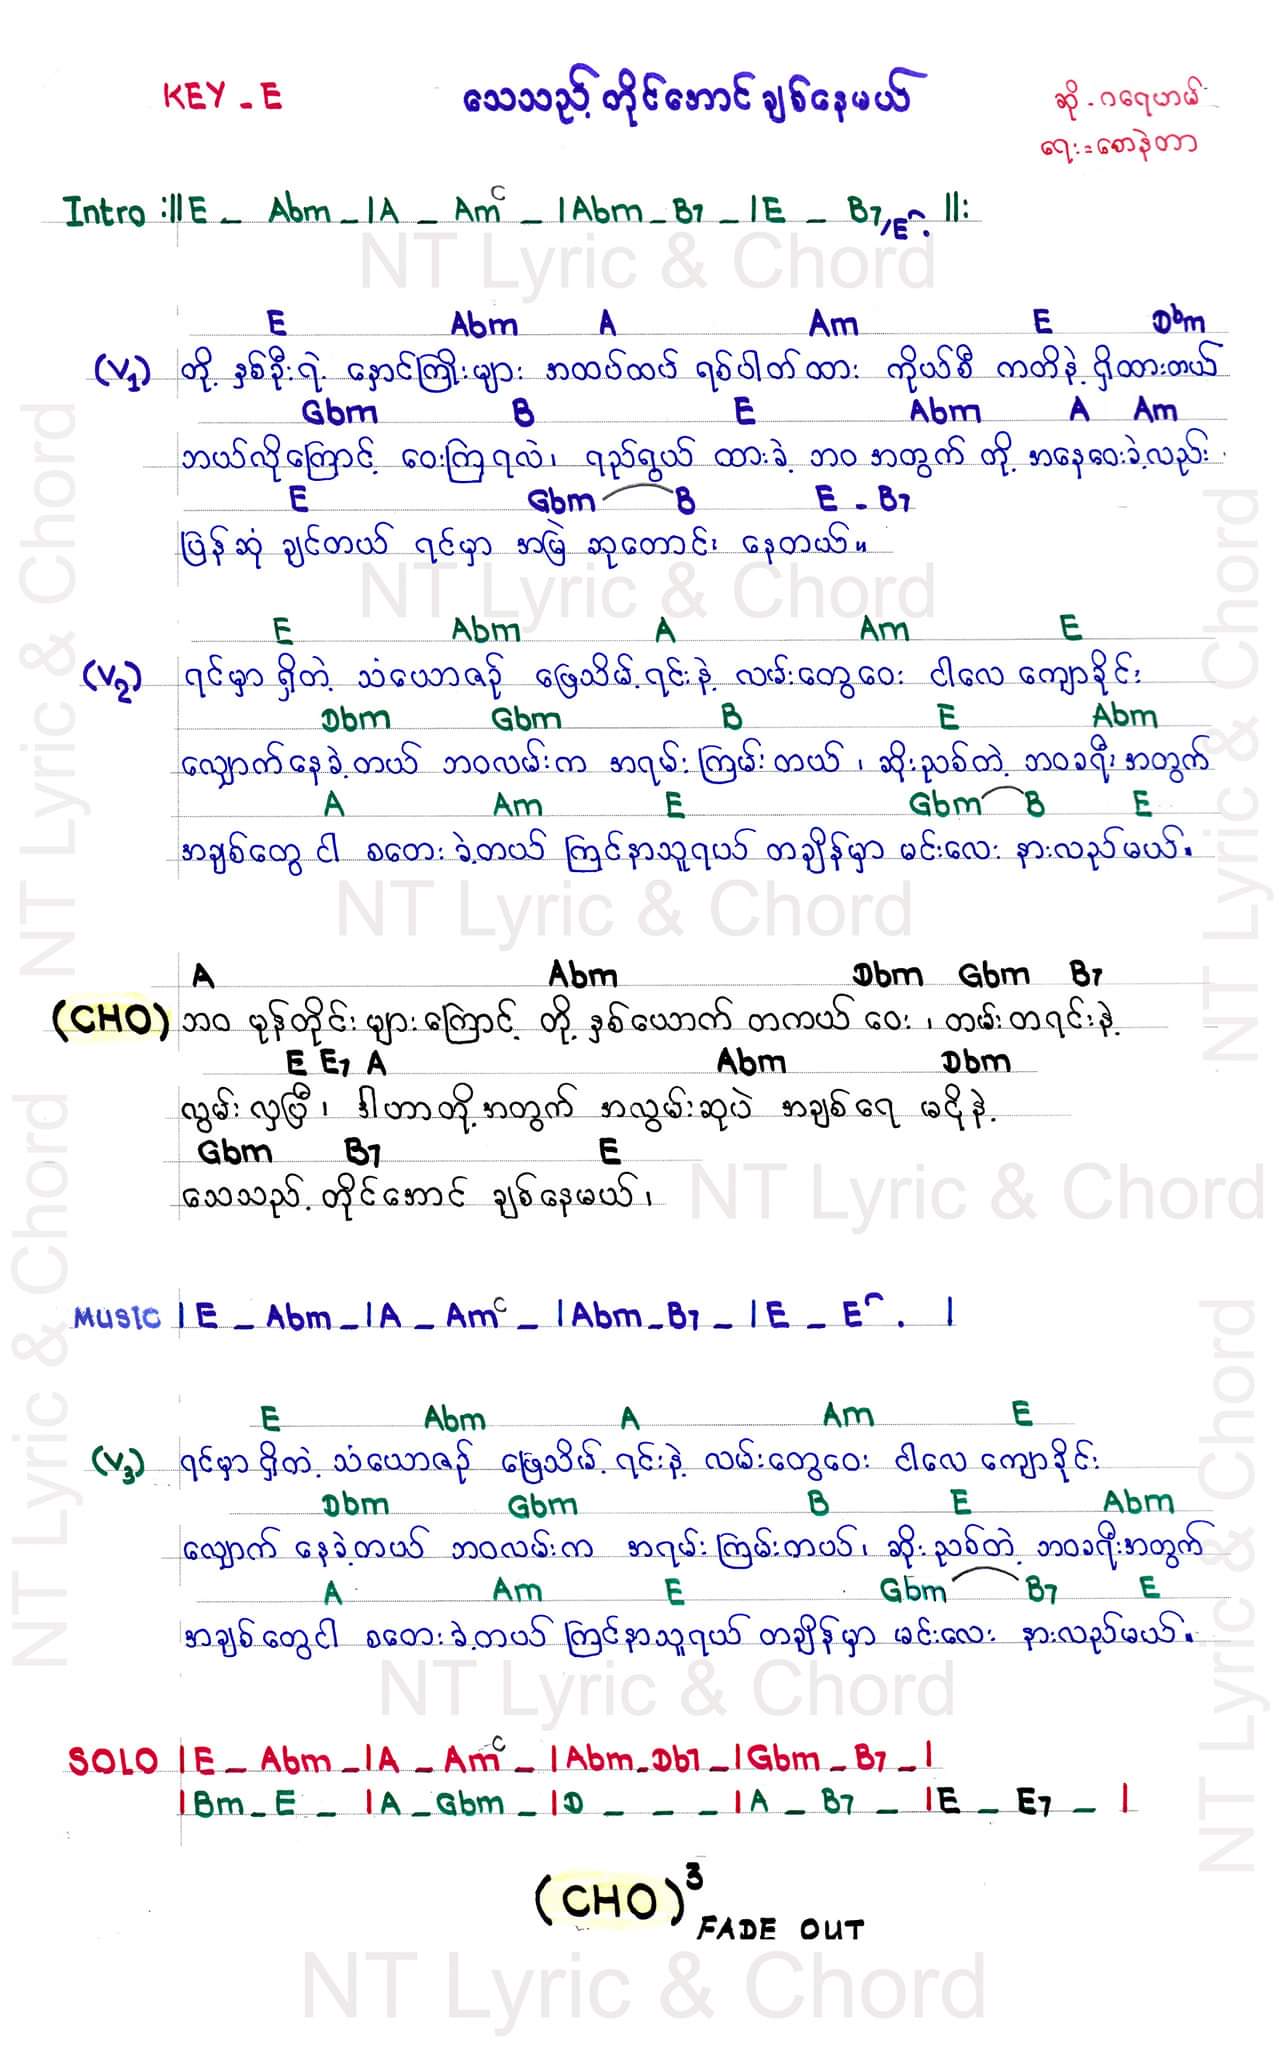 KEY - E
သေသည့်တိုင်အောင်ချစ်နေမယ်
ဆို - ဂရေဟမ်
ရေး = စောနဲတာ
Intro :||E _ Abm _ |A _ Am C _ |Abm _ B7 _ |E _ B7/E . ||:
E Abm A Am E Dbm
(V1) တို့ နှစ်ဦးရဲ့ နှောင်ကြိုးများ အထပ်ထပ် ရစ်ပါတ်ထား ကိုယ်စီ ကတိနဲ့ ရှိထားတယ်
Gbm B E Abm A Am
ဘယ်လိုကြောင့် ဝေးကြရလဲ၊ ရည်ရွယ် ထားခဲ့ ဘဝ အတွက် တို့ အနေဝေးခဲ့လည်း
E Gbm B E - B7
ပြန်ဆုံ ချင်တယ် ရင်မှာ အမြဲ ဆုတောင်း နေတယ်။
E Abm A Am E
(V2) ရင်မှာ ရှိတဲ့ သံယောဇဉ် ဖြေသိမ့်ရင်းနဲ့ လမ်းတွေဝေး ငါလေ ကျောခိုင်း
Dbm Gbm B E Abm
လျှောက်နေခဲ့တယ် ဘဝလမ်းက အရမ်းကြမ်းတယ်၊ ဆိုးညစ်တဲ့ ဘဝခရီးအတွက်
A Am E Gbm B E
အချစ်တွေ ငါ စတေးခဲ့တယ် ကြင်နာသူရယ် တချိန်မှာ မင်းလေး နားလည်မယ်။
A Abm Dbm Gbm B7
(CHO) ဘဝ မုန်တိုင်းများကြောင့် တို့ နှစ်ယောက် တကယ် ဝေး၊ တမ်းတရင်းနဲ့
E E7 A Abm Dbm
လွမ်းလှပြီ၊ ဒါဟာတို့အတွက် အလွမ်းဆုပဲ အချစ်ရေ မငိုနဲ့
Gbm B7 E
သေသည့် တိုင်အောင် ချစ်နေမယ်၊
MUSIC |E _ Abm _ |A _ Am C _ |Abm _ B7 _ |E _ E . |
E Abm A Am E
(V3) ရင်မှာ ရှိတဲ့ သံယောဇဉ် ဖြေသိမ့်ရင်းနဲ့ လမ်းတွေဝေး ငါလေ ကျောခိုင်း
Dbm Gbm B E Abm
လျှောက် နေခဲ့တယ် ဘဝလမ်းက အရမ်းကြမ်းတယ်၊ ဆိုးညစ်တဲ့ ဘဝခရီးအတွက်
A Am E Gbm B7 E
အချစ်တွေငါ စတေးခဲ့တယ် ကြင်နာသူရယ် တချိန်မှာ မင်းလေး နားလည်မယ်။
SOLO |E _ Abm _ |A _ Am C _ |Abm _ Db7 _ |Gbm _ B7 _ |
|Bm _ E _ |A _ Gbm _ |D _ _ _ |A _ B7 _ |E _ E7 _ |
(CHO)3
FADE OUT
NT Lyric & Chord